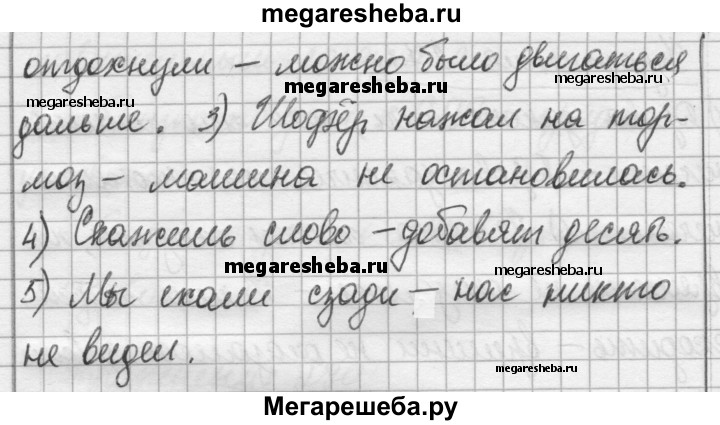 megaresheba.ru
отдохнули – можно было двигаться
megaresheba.ru
megaresheba.ru
megaresheba.ru
дальше. 3) Шофёр нажал на тор-
моз – машина не остановилась.
4) Скажешь слово – добавят десять.
megaresheba.ru
megaresheba.ru
5) Мы ехали сзади – нас никто
не видел.
Мегарешеба.ру